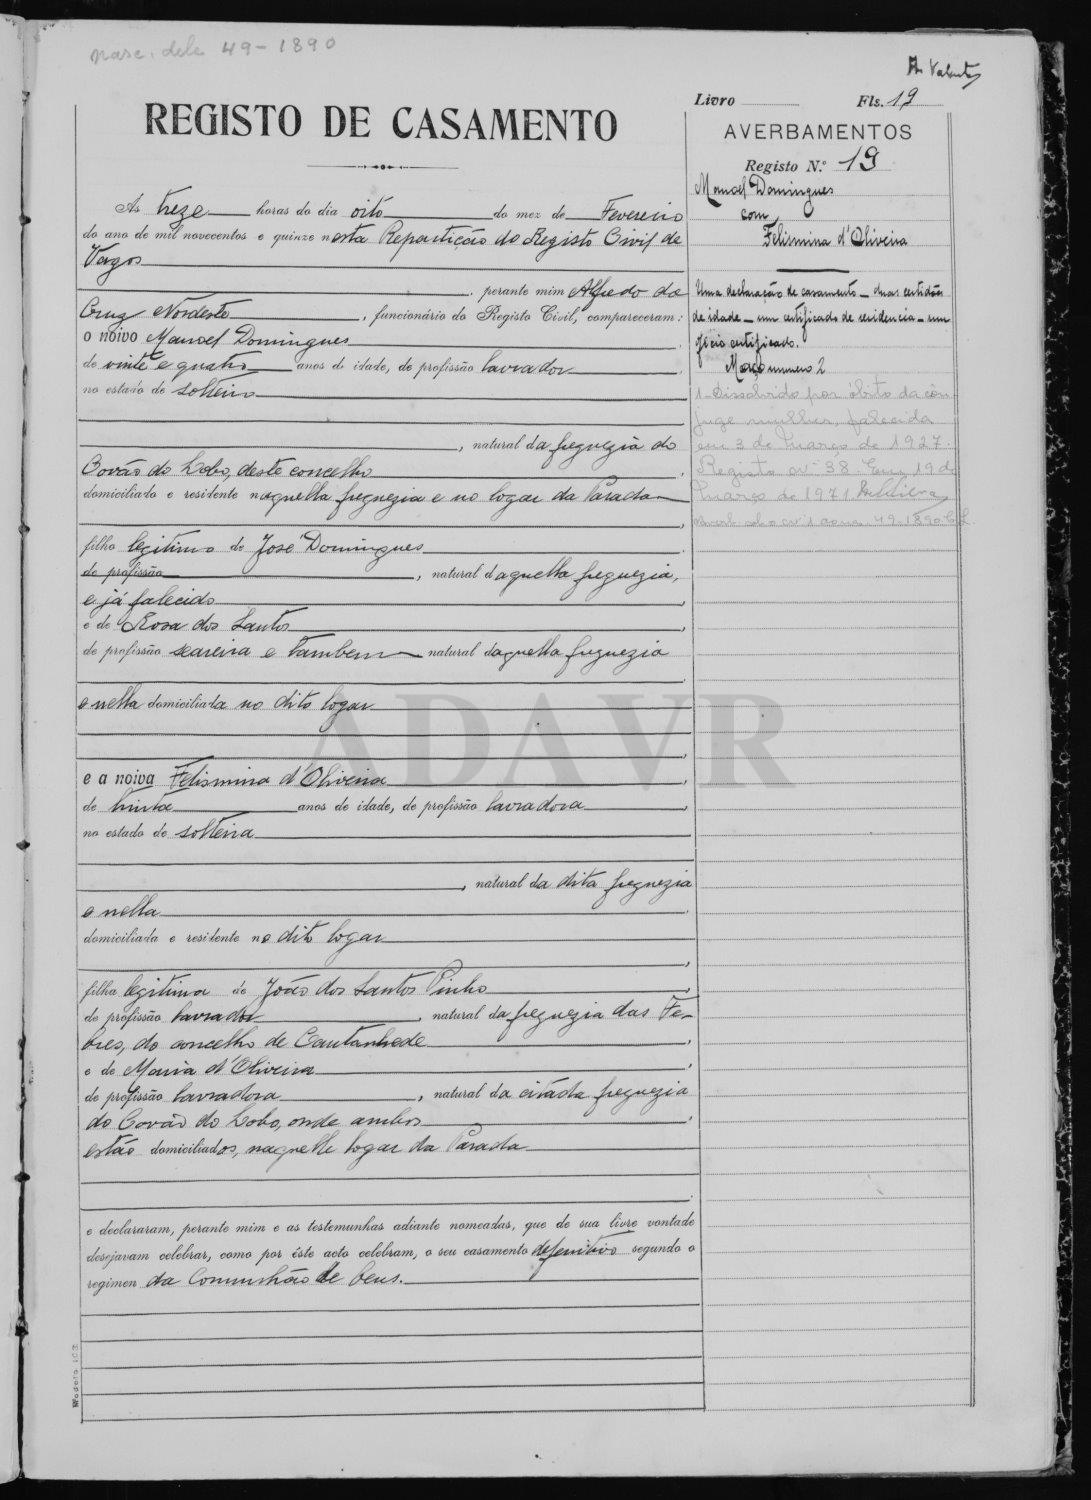 nasc. dele 49-1890
Livro Fls. 19
REGISTO DE CASAMENTO
AVERBAMENTOS
Registo N.º 19
Manoel Domingues
com
Felismina d'Oliveira
Uma declaração de casamento - duas certidões
de idade - um certificado de residencia - um
oficio certificado.
Março numero 2
1 - Dissolvido por óbito da côn-
juge mulher, falecida
em 3 de Março de 1927.
Registo nº 38. Em 19 de
Março de 1971
49-1890
As treze horas do dia oito do mez de Fevereiro
do ano de mil novecentos e quinze nesta Repartição do Registo Civil de
Vagos
, perante mim Alfredo da
Cruz Nordeste, funcionário do Registo Civil, compareceram:
o noivo Manoel Domingues
de vinte e quatro anos de idade, de profissão lavrador
no estado de solteiro
, natural da freguezia do
Covão do Lobo, deste concelho
domiciliado e residente naquella freguezia e no logar da Parada
filho legitimo de José Domingues
de profissão , natural daquella freguezia,
e já falecido
e de Rosa dos Santos
de profissão seareira e tambem natural daquella freguezia
e nella domiciliada no dito logar
ADAVR
e a noiva Felismina d'Oliveira
de trinta anos de idade, de profissão lavradora
no estado de solteira
, natural da dita freguezia
e nella
domiciliada e residente no dito logar
filha legitima de João dos Santos Pinho
de profissão lavrador, natural da freguezia das Fe-
bres, do concelho de Cantanhede
e de Maria d'Oliveira
de profissão lavradora, natural da citada freguezia
do Covão do Lobo, onde ambos
estão domiciliados, naquelle logar da Parada
e declararam, perante mim e as testemunhas adiante nomeadas, que de sua livre vontade
desejavam celebrar, como por êste acto celebram, o seu casamento definitivo segundo o
regimen da Comunhão de bens.
Modelo 103